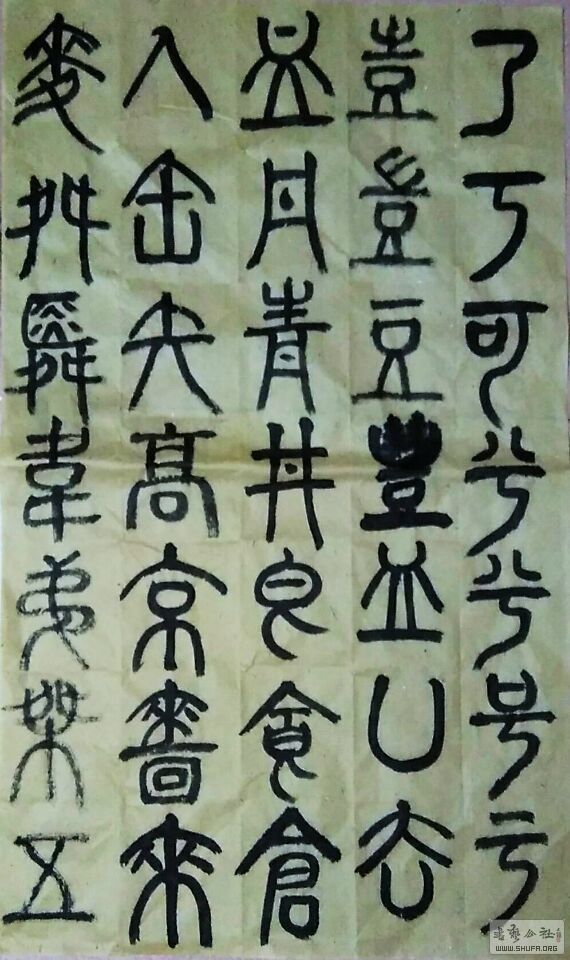 乃丂可兮兮号亏
壴豈豆豐皿凵去
血丹青井皀食倉
入缶矢高京嗇來
麥舛舜韋弟桀五
书艺公社
WWW.SHUFA.ORG